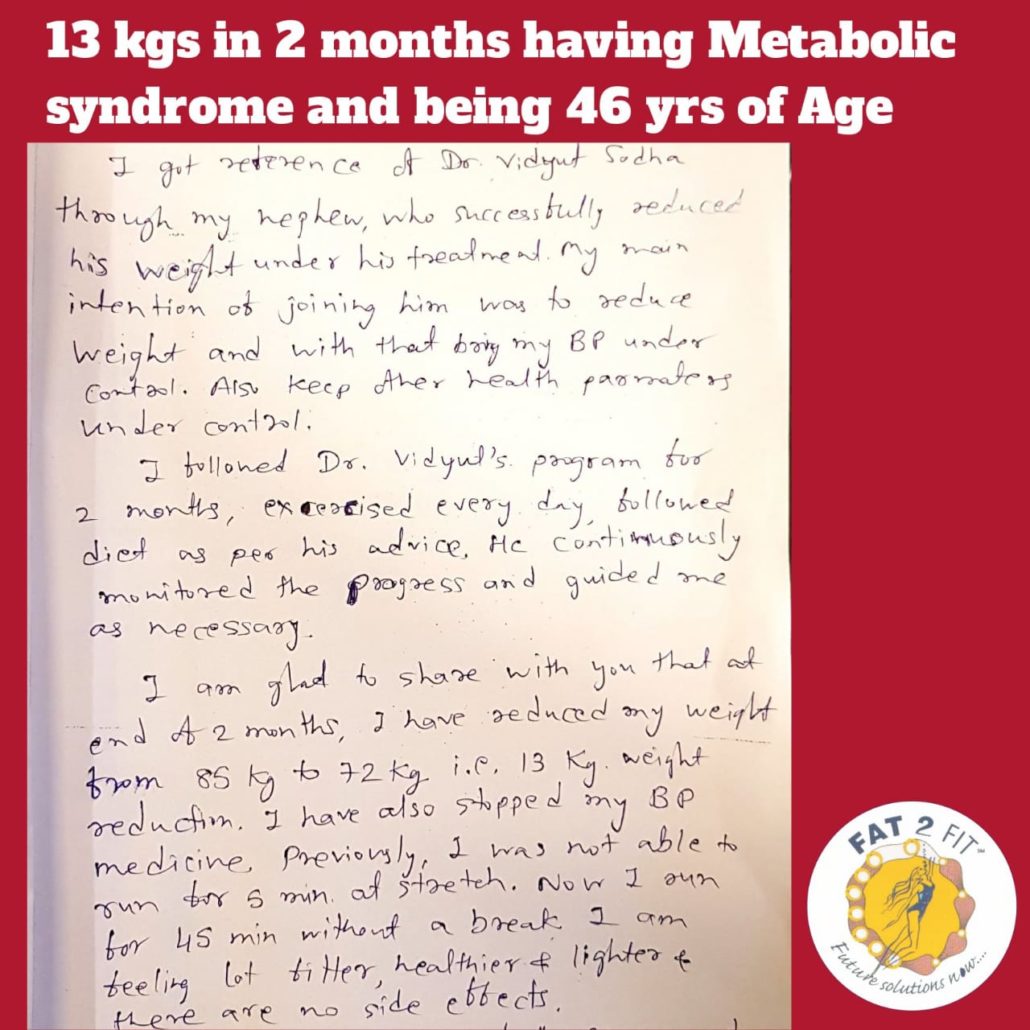 13 kgs in 2 months having Metabolic
syndrome and being 46 yrs of Age
I got reference of Dr. Vidyut Sodha
through my nephew, who successfully reduced
his weight under his treatment. My main
intention of joining him was to reduce
weight and with that bring my BP under
control. Also keep other health parmaters
under control.
I followed Dr. Vidyut's program for
2 months, excercised every day, followed
diet as per his advice. He continuously
monitored the progress and guided me
as necessary.
I am glad to share with you that at
end of 2 months, I have reduced my weight
from 85 kg to 72 kg i.e. 13 Kg. weight
reduction. I have also stopped my BP
medicine. Previously, I was not able to
run for 5 min. at stretch. Now I run
for 45 min without a break I am
feeling lot fitter, healthier & lighter &
there are no side effects.
FAT 2 FIT
Future solutions now....